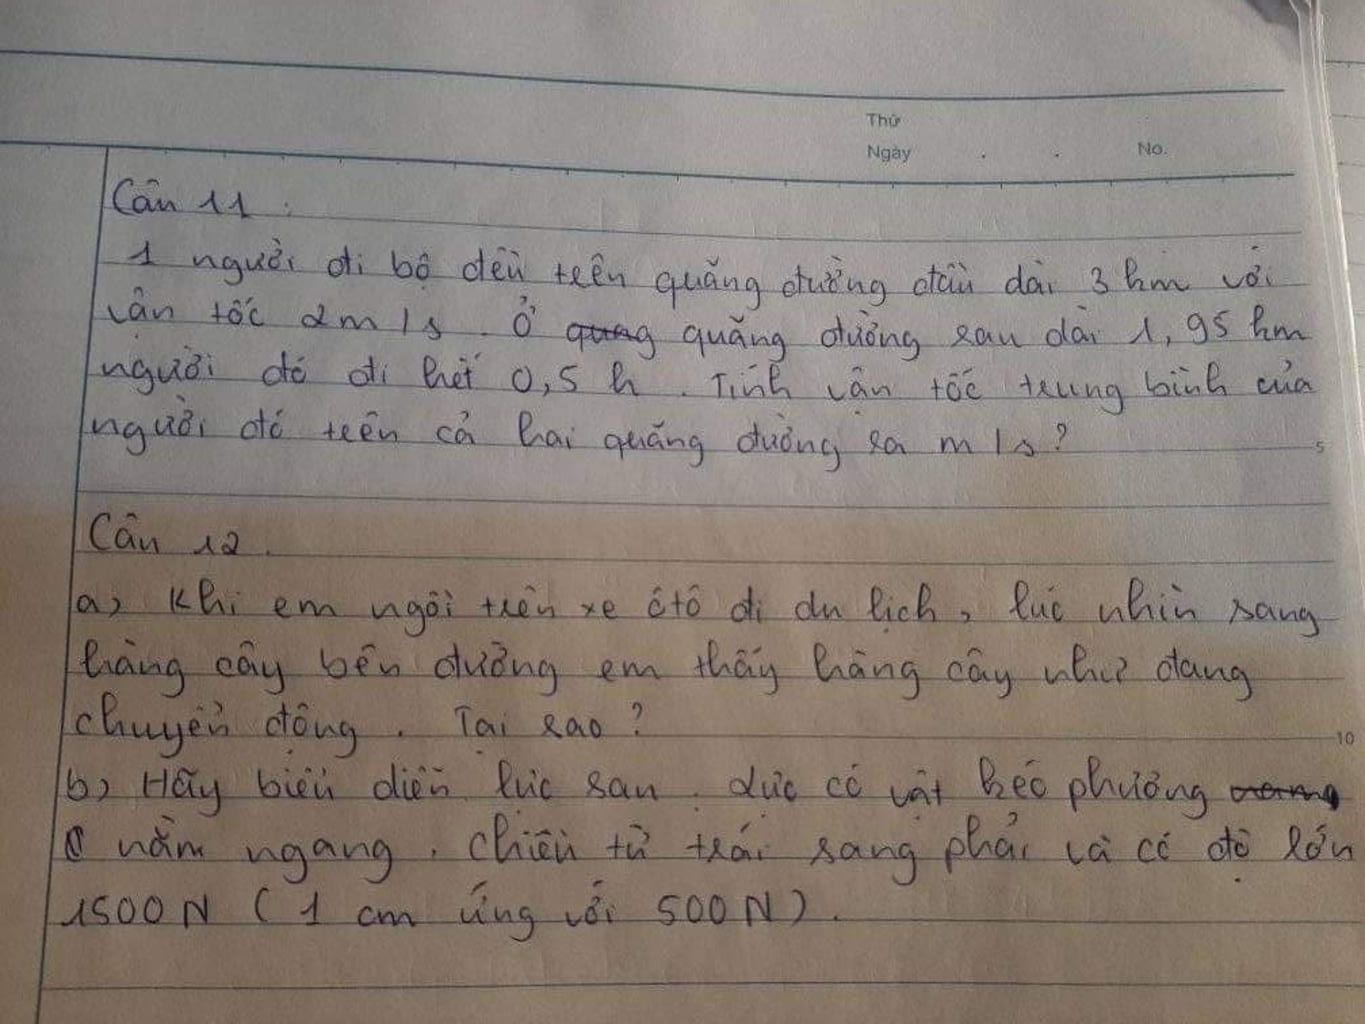 Thứ
Ngày . . No.
Câu 11 :
1 người đi bộ đều trên quãng đường đầu dài 3 km với
vận tốc 2m/s. Ở quang quãng đường sau dài 1,95 km
người đó đi hết 0,5 h. Tính vận tốc trung bình của
người đó trên cả hai quãng đường ra m/s?
5
Câu 12.
a, Khi em ngồi trên xe ôtô đi du lịch, lúc nhìn sang
hàng cây bên đường em thấy hàng cây như đang
chuyển động. Tại sao?
10
b, Hãy biểu diễn lực sau. Lực có vật kéo phương
nằm ngang. Chiều từ trái sang phải và có độ lớn
1500N (1 cm ứng với 500N).